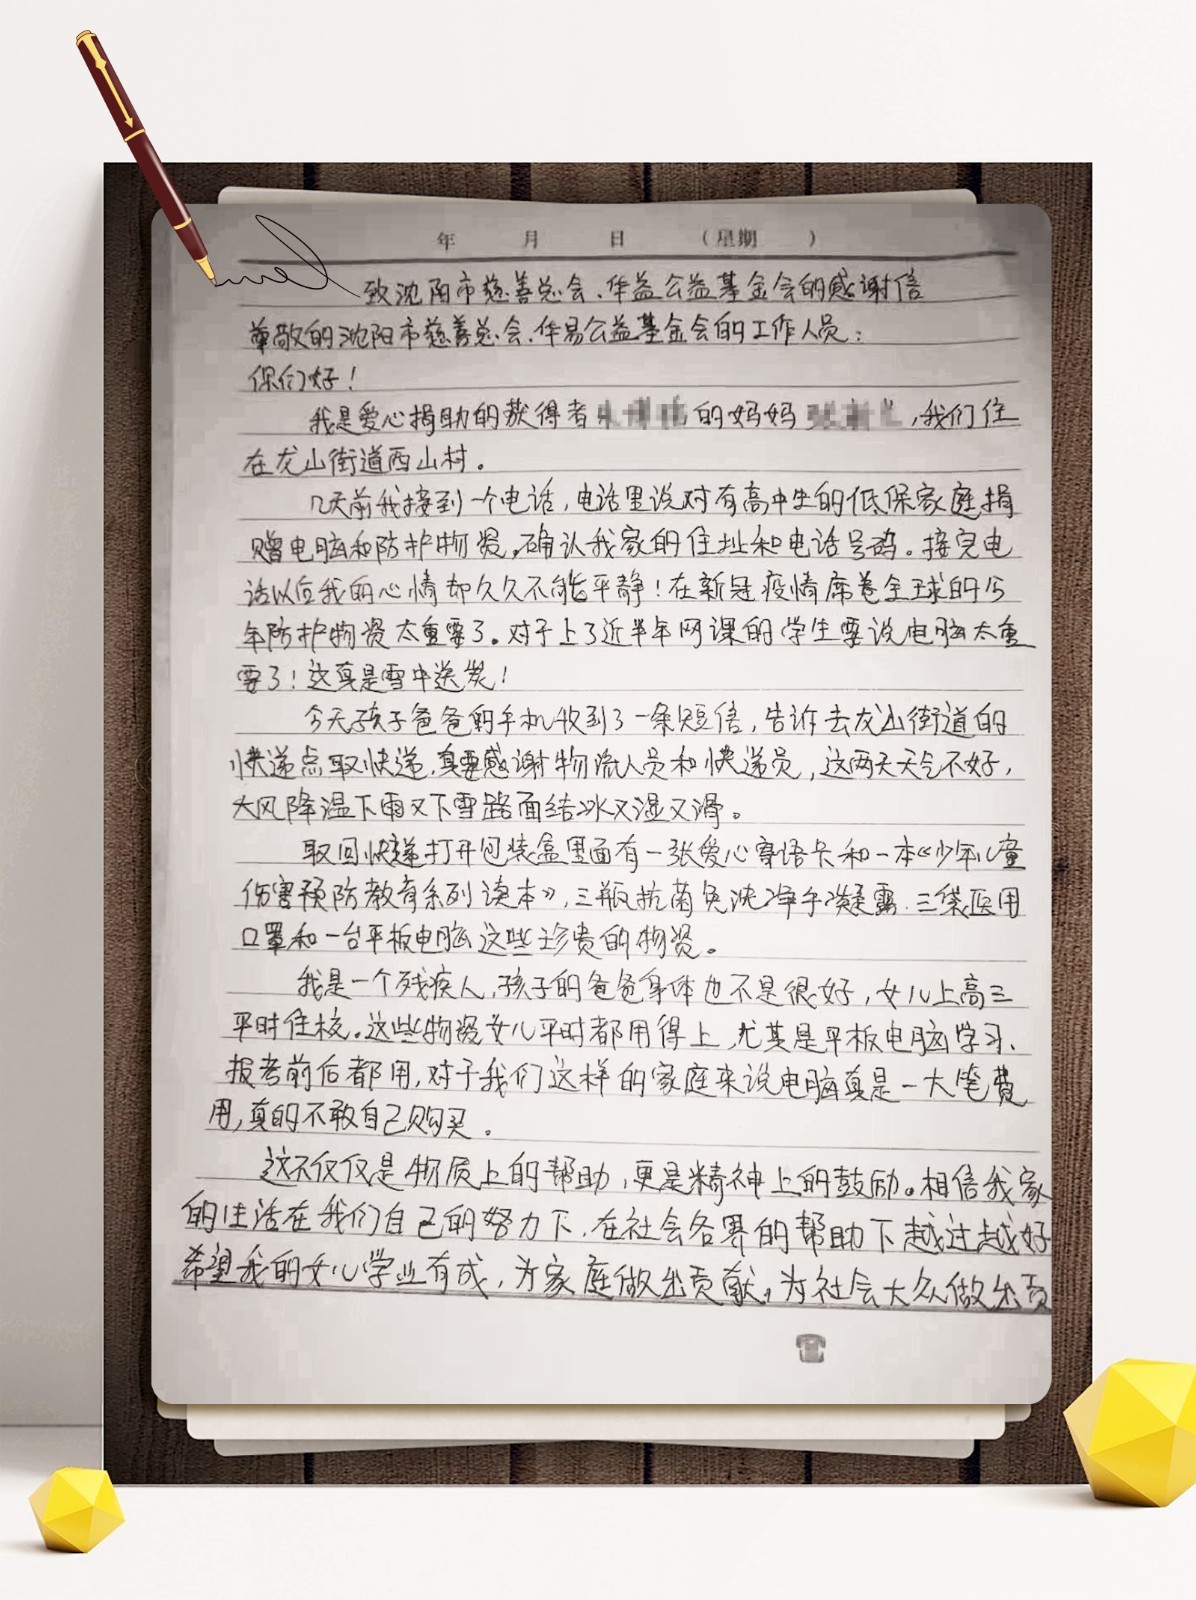 年 月 日 （星期 ）
致沈阳市慈善总会、华益公益基金会的感谢信
尊敬的沈阳市慈善总会、华易公益基金会的工作人员：
你们好！
我是爱心捐助的获得者 的妈妈 ，我们住
在龙山街道西山村。
几天前我接到一个电话，电话里说对有高中生的低保家庭捐
赠电脑和防护物资，确认我家的住址和电话号码。接完电
话以后我的心情却久久不能平静！在新冠疫情席卷全球的今
年防护物资太重要了。对于上了近半年网课的学生要说电脑太重
要了！这真是雪中送炭！
今天孩子爸爸的手机收到了一条短信，告诉去龙山街道的
快递点取快递，真要感谢物流人员和快递员，这两天天气不好，
大风降温下雨又下雪路面结冰又湿又滑。
取回快递打开包装盒里面有一张爱心寄语卡和一本《少年儿童
伤害预防教育系列读本》，三瓶抗菌免洗净手凝露、三袋医用
口罩和一台平板电脑这些珍贵的物资。
我是一个残疾人，孩子的爸爸身体也不是很好，女儿上高三
平时住校。这些物资女儿平时都用得上，尤其是平板电脑学习、
报考前后都用，对于我们这样的家庭来说电脑真是一大笔费
用，真的不敢自己购买。
这不仅仅是物质上的帮助，更是精神上的鼓励。相信我家
的生活在我们自己的努力下，在社会各界的帮助下越过越好
希望我的女儿学业有成，为家庭做出贡献，为社会大众做出贡